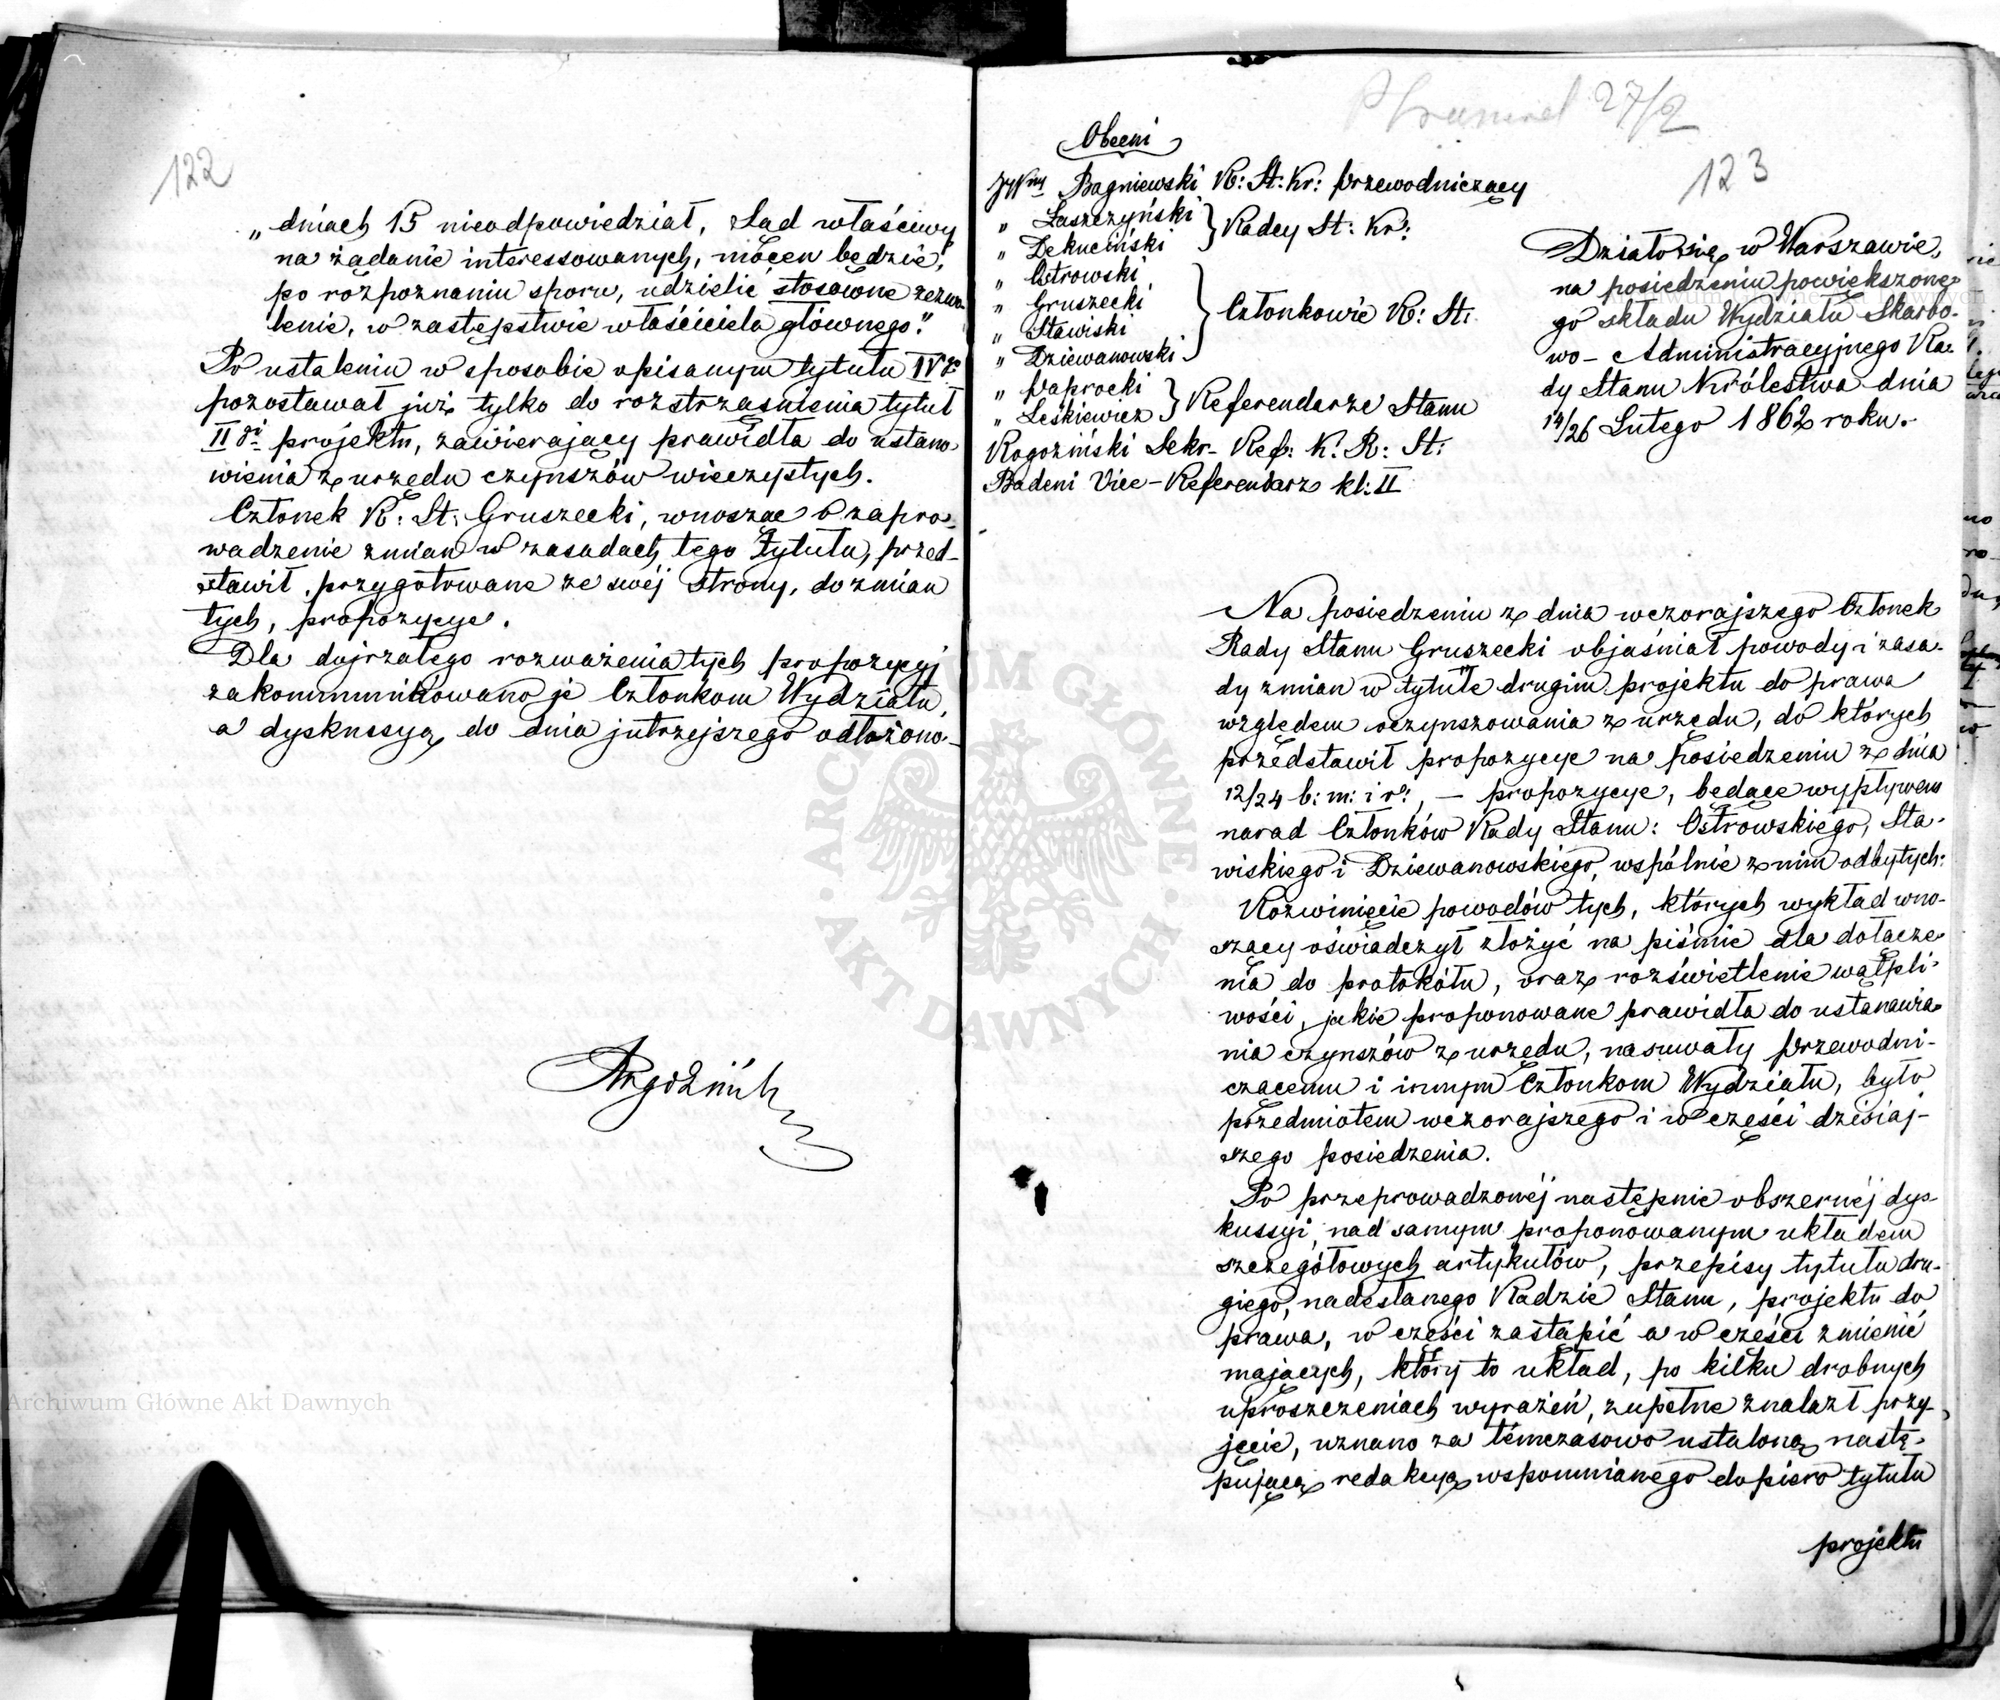 122
„dniach 15 nieodpowiedział, Sąd właściwy
na żądanie interessowanych, mocen będzie,
po rozpoznaniu sporu, udzielić stosowne zezwo-
lenie, w zastępstwie właściciela głównego."
Po ustaleniu w sposobie opisanym tytułu IVgo
pozostawał już tylko do rozstrząśnienia tytuł
II gi projektu, zawierający prawidła do ustano-
wienia z urzędu czynszów wieczystych.
Członek R: St: Gruszecki, wnosząc o zapro-
wadzenie zmian w zasadach tego tytułu, przed-
stawił, przygotowane ze swéj strony, do zmian
tych, propozycye.
Dla dojrzałego rozważenia tych propozycyj
zakommunikowano je Członkom Wydziału,
a dyskussyą do dnia jutrzejszego odłożono.
27/2
123
Obecni
JWny Bagniewski R: St: Kr: Przewodniczący
„ Łaszczyński
„ Dekuciński
Radcy St: Kr:
„ Ostrowski
„ Gruszecki
„ Stawiski
„ Dziewanowski
Członkowie R: St:
„ Paprocki
„ Leskiewicz
Referendarze Stanu
Rogoziński Sekr- Ref: K: R: St:
Badeni Vice-Referendarz kl: II
Działo się w Warszawie,
na posiedzeniu powiększone-
go składu Wydziału Skarbo-
wo-Administracyjnego Ra-
dy Stanu Królestwa dnia
14/26 Lutego 1862 roku.
Na posiedzeniu z dnia wczorajszego Członek
Rady Stanu Gruszecki objaśniał powody i zasa-
dy zmian w tytule drugim projektu do prawa
względem oczynszowania z urzędu, do których
przedstawił propozycye na posiedzeniu z dnia
12/24 b: m: i r:, — propozycye, będące wypływem
narad Członków Rady Stanu: Ostrowskiego, Sta-
wiskiego i Dziewanowskiego, wspólnie z nim odbytych.
Rozwinięcie powodów tych, których wykład wno-
szący oświadczył złożyć na piśmie dla dołącze-
nia do protokółu, oraz rozświetlenie wątpli-
wości, jakie proponowane prawidła do ustanawia-
nia czynszów z urzędu, nasuwały Przewodni-
czącemu i innym Członkom Wydziału, było
przedmiotem wczorajszego i w części dzisiaj-
szego posiedzenia.
Po przeprowadzonéj następnie obszernéj dys-
kussyi, nad samym proponowanym układem
szczegółowych artykułów, przepisy tytułu dru-
giego, nadesłanego Radzie Stanu, projektu do
prawa, w części zastąpić a w części zmienić
mających, który to układ, po kilku drobnych
uproszczeniach wyrażeń, zupełne znalazł przy-
jęcie, uznano za témczasowo ustaloną nastę-
pującą redakcyą wspomnianego dopiero tytułu
projektu
ARCHIWUM GŁÓWNE AKT DAWNYCH
Archiwum Główne Akt Dawnych
Archiwum Główne Akt Dawnych